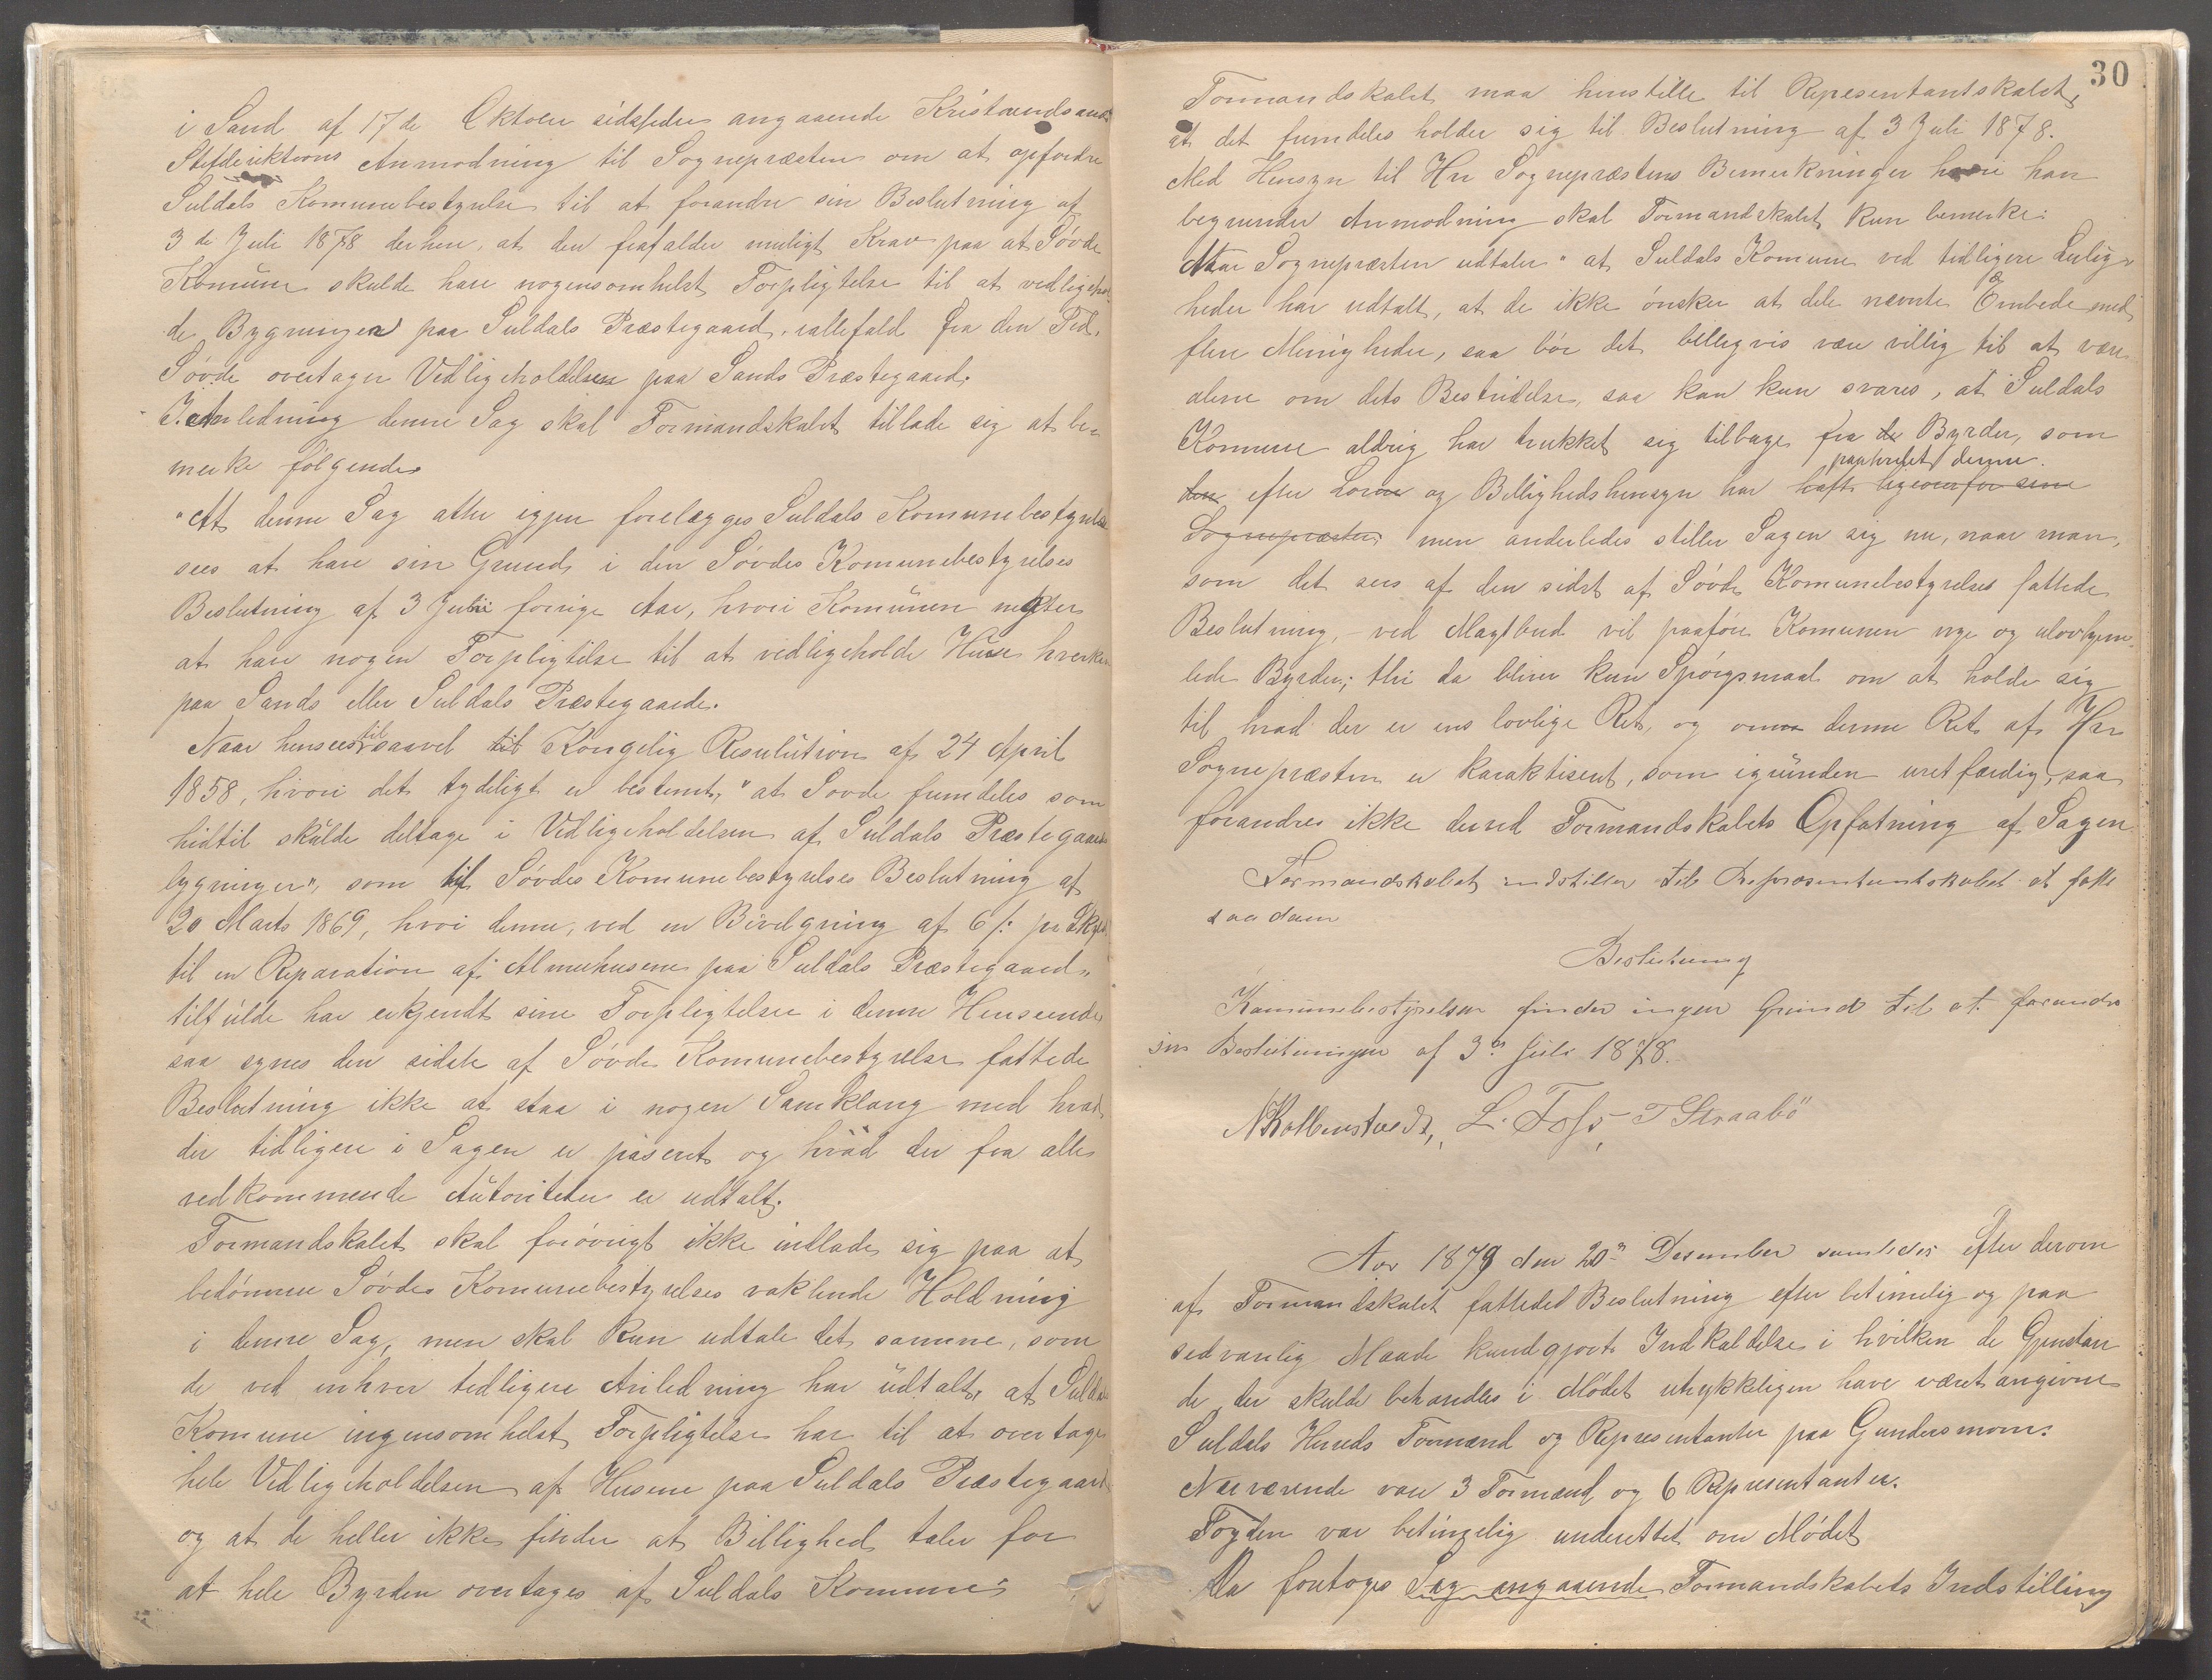 i Sand af 17de Oktober sidstleden angaaende Kristiansands
Stiftdirektions Anmodning til Sognepræsten om at opfordre
Suldals Komunebestyrelse til at forandre sin Beslutning af
3de Juli 1878 derhen, at den frafalder muligt Krav paa at Søvde
Komune skulde have nogensomhelst Forpligtelse til at vedligehol
de Bygningen paa Suldals Præstegaard, iallefald fra den Tid,
Søvde overtager Vedligeholdelsen paa Sands Præstegaard.
I Anledning denne Sag skal Formandskabet tillade sig at be-
merke følgende
"At denne Sag atter igjen forelægges Suldals Komunebestyrelse
sees at have sin Grund i den Søvdes Komunebestyrelses
Beslutning af 3 Juli forrige Aar, hvori Komunen negter
at have nogen Forpligtelse til at vedligeholde Huse hverken
paa Sands eller Suldals Præstegaarde.
Naar henseest til saavel til Kongelig Resulution af 24 April
1858, hvori det tydeligt er bestemt, "at Sovde fremdeles som
hidtil skulde deltage i Vedligeholdelsen af Suldals Præstegaards
bygninger", som til Søvdes Komunebestyrelses Beslutning af
20 Marts 1869, hvori denne, ved en Bevilgning af 6 ß pr Skyld
til en Reparation af "Almuehusene paa Suldals Præstegaard"
tilfulde har erkjendt sine Forpligtelser i denne Henseende
saa synes den sidste af Søvde Komunebestyrelse fattede
Beslutning ikke at staa i nogen Samklang med hvad
der tidligere i Sagen er paseret og hvad der fra alle
vedkommende Autoriteter er udtalt.
Formandskabet skal forøvrigt ikke indlade sig paa at
bedømme Søvdes Komunebestyrelses vaklende Holdning
i denne Sag, men skal kun udtale det samme, som
de ved enhver tidligere Anledning har udtalt, at Suldals
Komune ingensomhelst Forpligtelse har til at overtage
hele Vedligeholdelsen af Husene paa Suldals Præstegaard
og at de heller ikke finder at Billighed taler for
at hele Byrden overtages af Suldals Komune;
30
Formandskabet maa henstille til Representantskabet,
at det fremdeles holder sig til Beslutning af 3 Juli 1878.
Med Hensyn til Hr Sognepræstens Bemerkninger hvori han
begrunder Anmodning skal Formandskabet kun bemerke:
Naar Sognepræsten udtaler "at Suldals Komune ved tidligere Leilig-
heder har udtalt, at de ikke ønsker at dele nævnte Embede med
flere Menigheder, saa bør det billigvis være villig til at være
alene om dets Bestridelse, saa kan kun svares, at Suldals
Komune aldrig har trukket sig tilbage fra de Byrder, som
paahvilet denne.
den efter Lovene og Billighedshensyn har haft ligeoverfor sine
Sognepræster, men anderledes stiller Sagen sig nu, naar man,
som det sees af den sidst af Søvde Komunebestyrelse fattede
Beslutning, – ved Magtbud vil paaføre Komunen nye og ulovhjem-
lede Byrder; thi da bliver kun Spørgsmaal om at holde sig
til hvad der er ens lovlige Ret, og om denne Ret af Hr
Sognepræsten er karaktiseret, som igrunden uretfærdig, saa
forandres ikke derved Formandskabets Opfatning af Sagen
Formandskabet indstiller til Representantskabet at fatte
saadan
Beslutning
Komunebestyrelsen finder ingen Grund til at forandre
sin Beslutningen af 3de Juli 1878.
N Kolbenstvedt, L. Foss, T Straabø
Aar 1879 den 20de Desember samledes efter derom
af Formandskabet fattedet Beslutning efter betimelig og paa
sedvanlig Maade kundgjort Indkaldelse i hvilken de Gjenstan
de der skulde behandles i Mødet utrykkeligen have været angivne
Suldals Hereds Formænd og Representanter paa Gundersmoen.
Nærværende var 3 Formænd og 6 Representanter.
Fogden var betimelig underettet om Mødet
Da foretoges Sag angaaende Formandskabets Indstilling